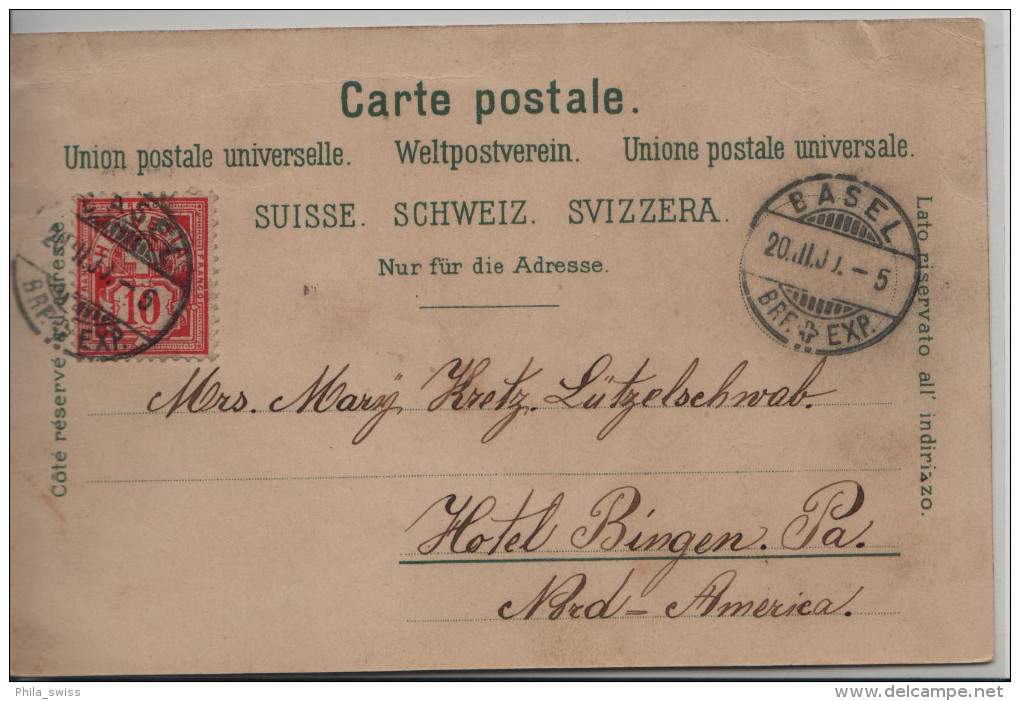 Carte postale.
Union postale universelle. Weltpostverein. Unione postale universale.
SUISSE. SCHWEIZ. SVIZZERA.
Nur für die Adresse.
Côté réservé à l'adresse
Lato riservato all' indirizzo.
FRANCO
10
BASEL
BRF. EXP.
BASEL
20.III. – 5
BRF. EXP.
Mrs. Mary Kretz. Lützelschwab.
Hotel Bingen. Pa.
Nord – America.
Phila_swiss
www.delcampe.net